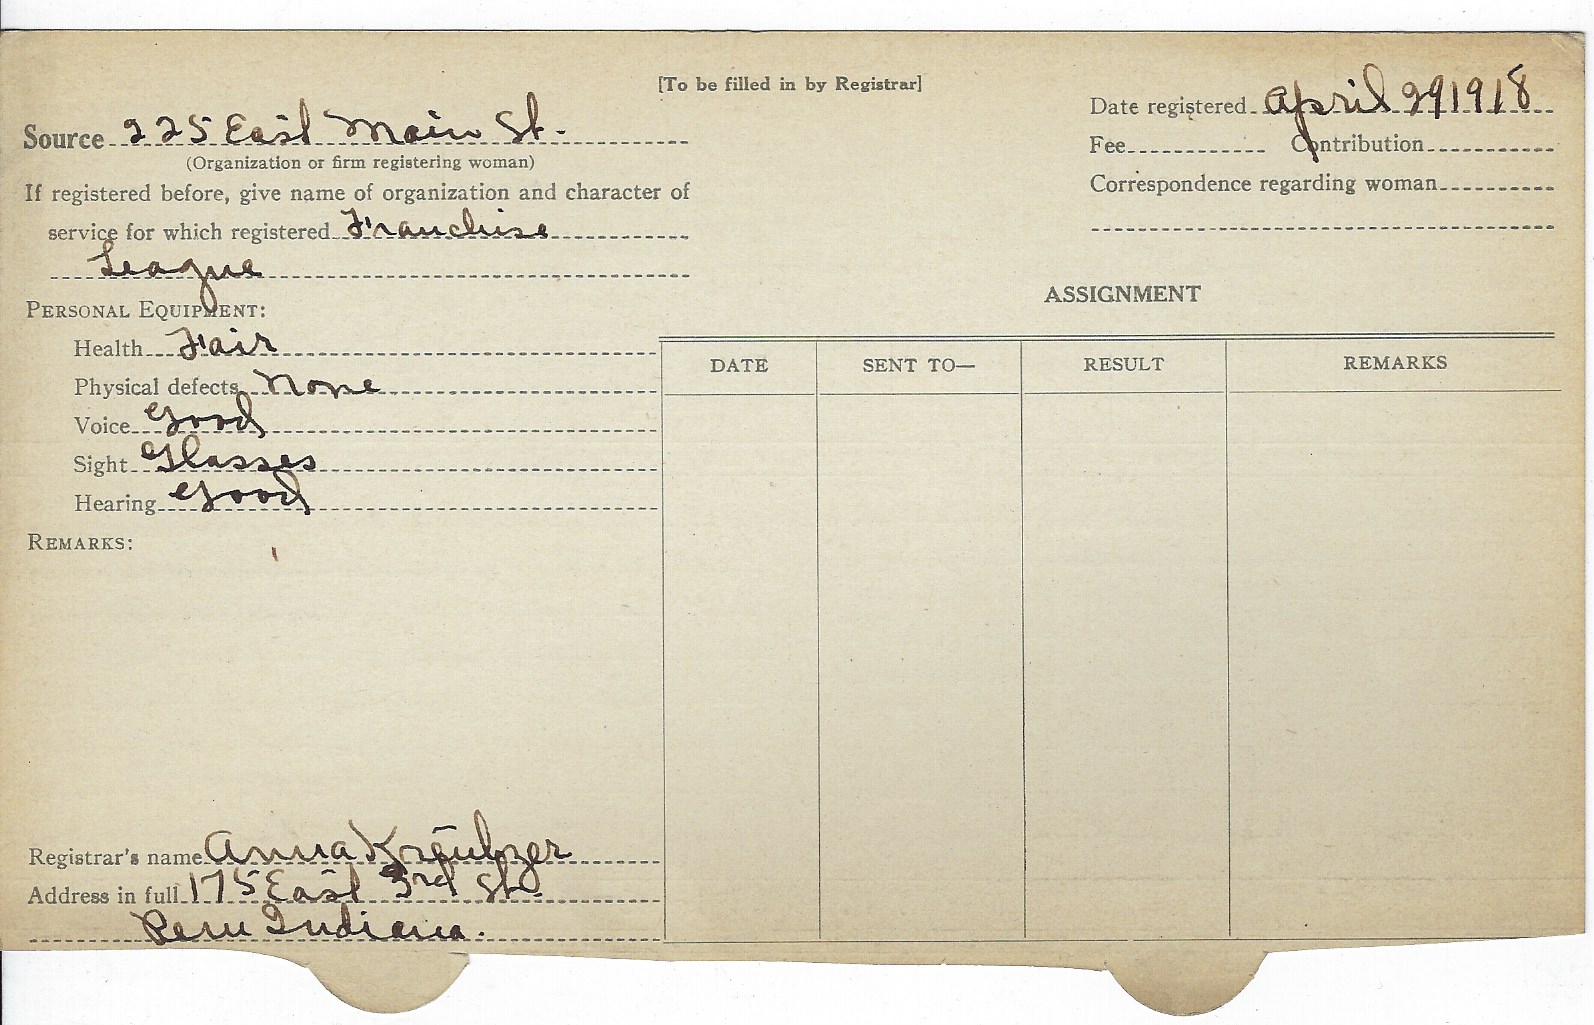 [To be filled in by Registrar]
Date registered April 29 1918
Source 225 East Main St.
(Organization or firm registering woman)
Fee Contribution
If registered before, give name of organization and character of
Correspondence regarding woman
service for which registered Franchise
League
ASSIGNMENT
PERSONAL EQUIPMENT:
Health Fair
DATE SENT TO— RESULT REMARKS
Physical defects None
Voice Good
Sight Glasses
Hearing Good
REMARKS:
Registrar's name Anna
Address in full 175 East 3rd St.
Peru Indiana.